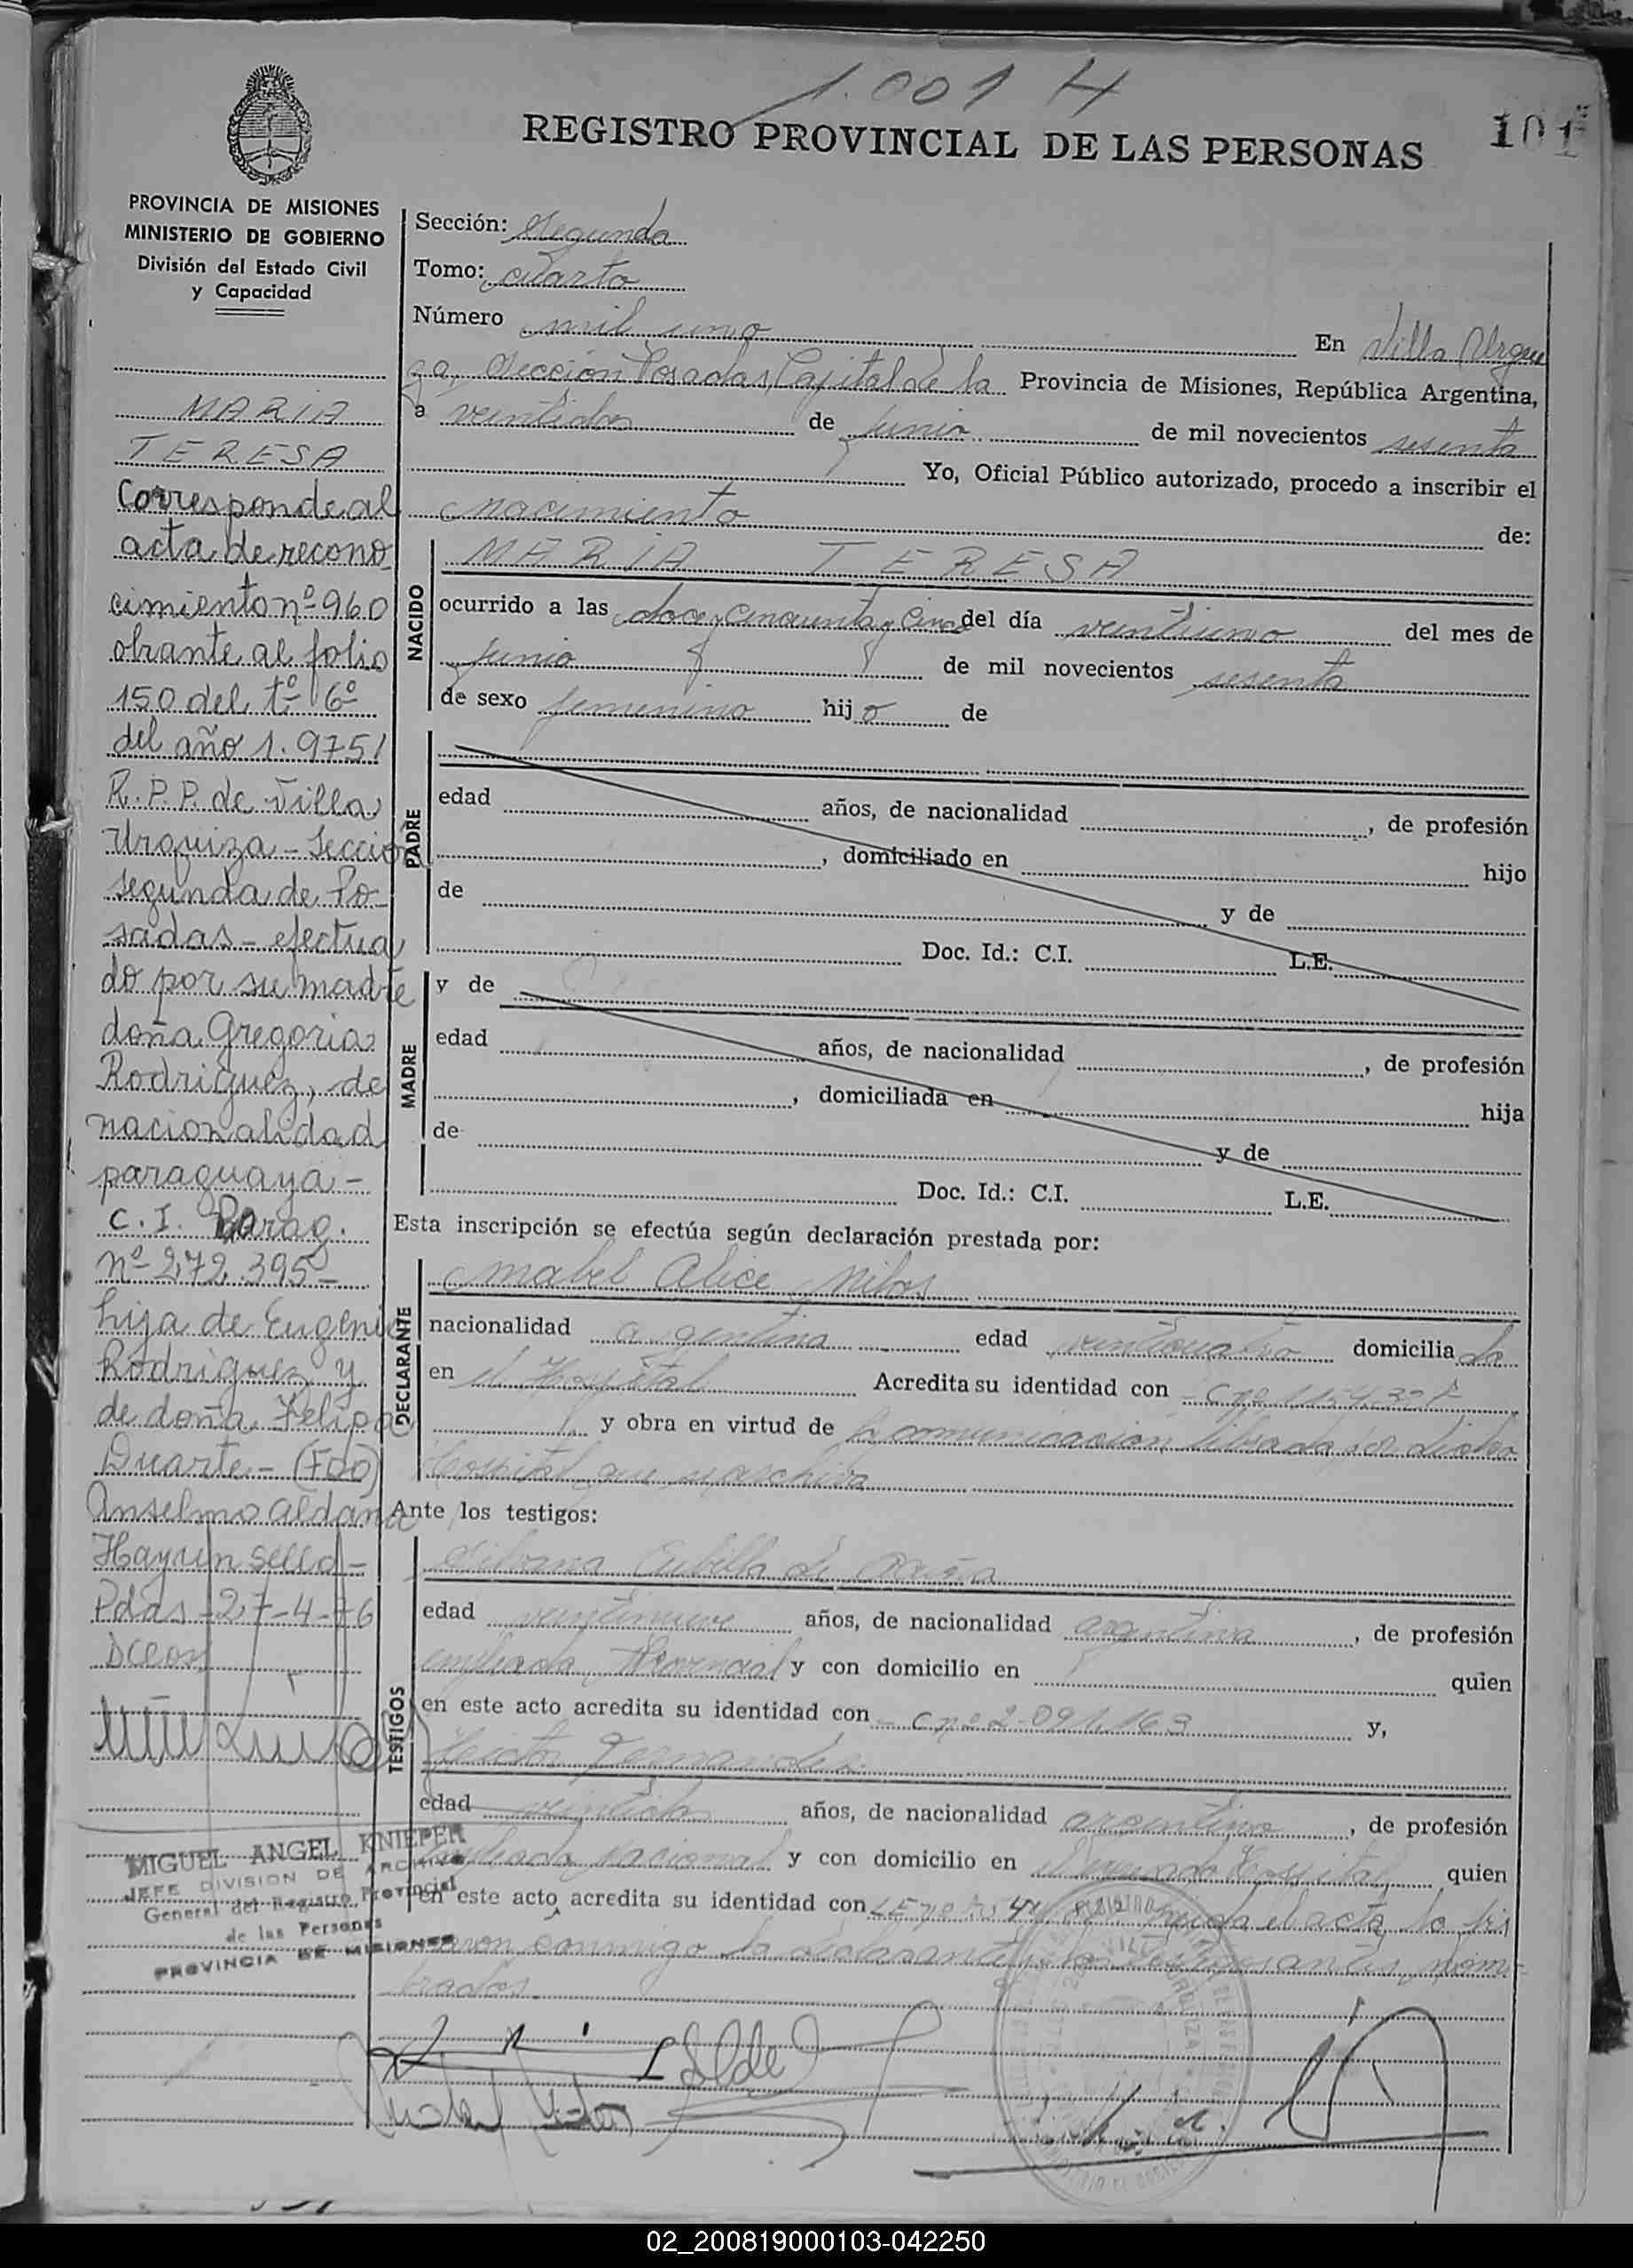 1.001 H
101
REGISTRO PROVINCIAL DE LAS PERSONAS
PROVINCIA DE MISIONES
MINISTERIO DE GOBIERNO
División del Estado Civil
y Capacidad
MARIA
TERESA
Corresponde al
acta de recono
cimiento nº 960
obrante al folio
150 del tº 6º
del año 1.975/
R.P.P. de Villa
Urquiza - Sección
segunda de Po-
sadas - efectua
do por su madre
doña Gregoria
Rodriguez, de
nacionalidad
paraguaya -
C.I. Parag.
nº 272.395 -
hija de Eugenio
Rodriguez y
de doña Felipa
Duarte - (Fdo)
Anselmo Aldana
Hay un sello -
Pdas - 27-4-76
MIGUEL ANGEL KNIEPER
JEFE DIVISION DE ARCHIVO
General del Registro Provincial
de las Personas
PROVINCIA DE MISIONES
Sección: Segunda
Tomo: cuarto
Número mil uno En Villa Urqui
za, Sección Posadas, Capital de la Provincia de Misiones, República Argentina,
a veintidos de junio de mil novecientos sesenta
Yo, Oficial Público autorizado, procedo a inscribir el
nacimiento de:
NACIDO
MARIA TERESA
ocurrido a las doce y cincuenta y cinco del día veintiuno del mes de
junio de mil novecientos sesenta
de sexo femenino hijo de
PADRE
edad años, de nacionalidad , de profesión
, domiciliado en hijo
de y de
Doc. Id.: C.I. L.E.
MADRE
y de
edad años, de nacionalidad , de profesión
, domiciliada en hija
de y de
Doc. Id.: C.I. L.E.
Esta inscripción se efectúa según declaración prestada por:
DECLARANTE
Mabel Alice
nacionalidad argentina edad veinticuatro domiciliada
en el Hospital Acredita su identidad con
y obra en virtud de la comunicación librada por dicho
Hospital que se archiva
Ante los testigos:
TESTIGOS
Cubilla de
edad veintinueve años, de nacionalidad argentina, de profesión
empleada Provincial y con domicilio en quien
en este acto acredita su identidad con C nº 2.091.163 y,
Hector Fernandez
edad veintidos años, de nacionalidad argentino, de profesión
empleado nacional y con domicilio en el Hospital quien
en este acto acredita su identidad con LE nº el acta la fir
maron conmigo la declarante y los testigos antes nom-
brados.
02_200819000103-042250